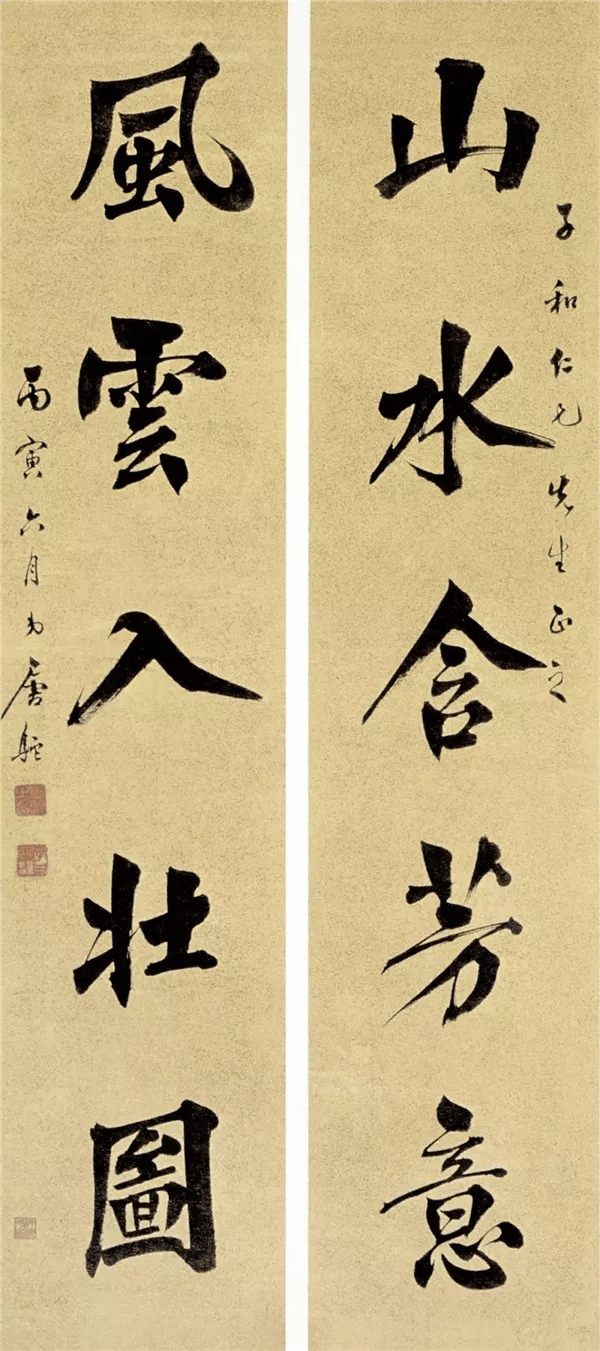 子和仁兄先生正之
山水含芳意
風雲入壯圖
丙寅六月弟唐駝